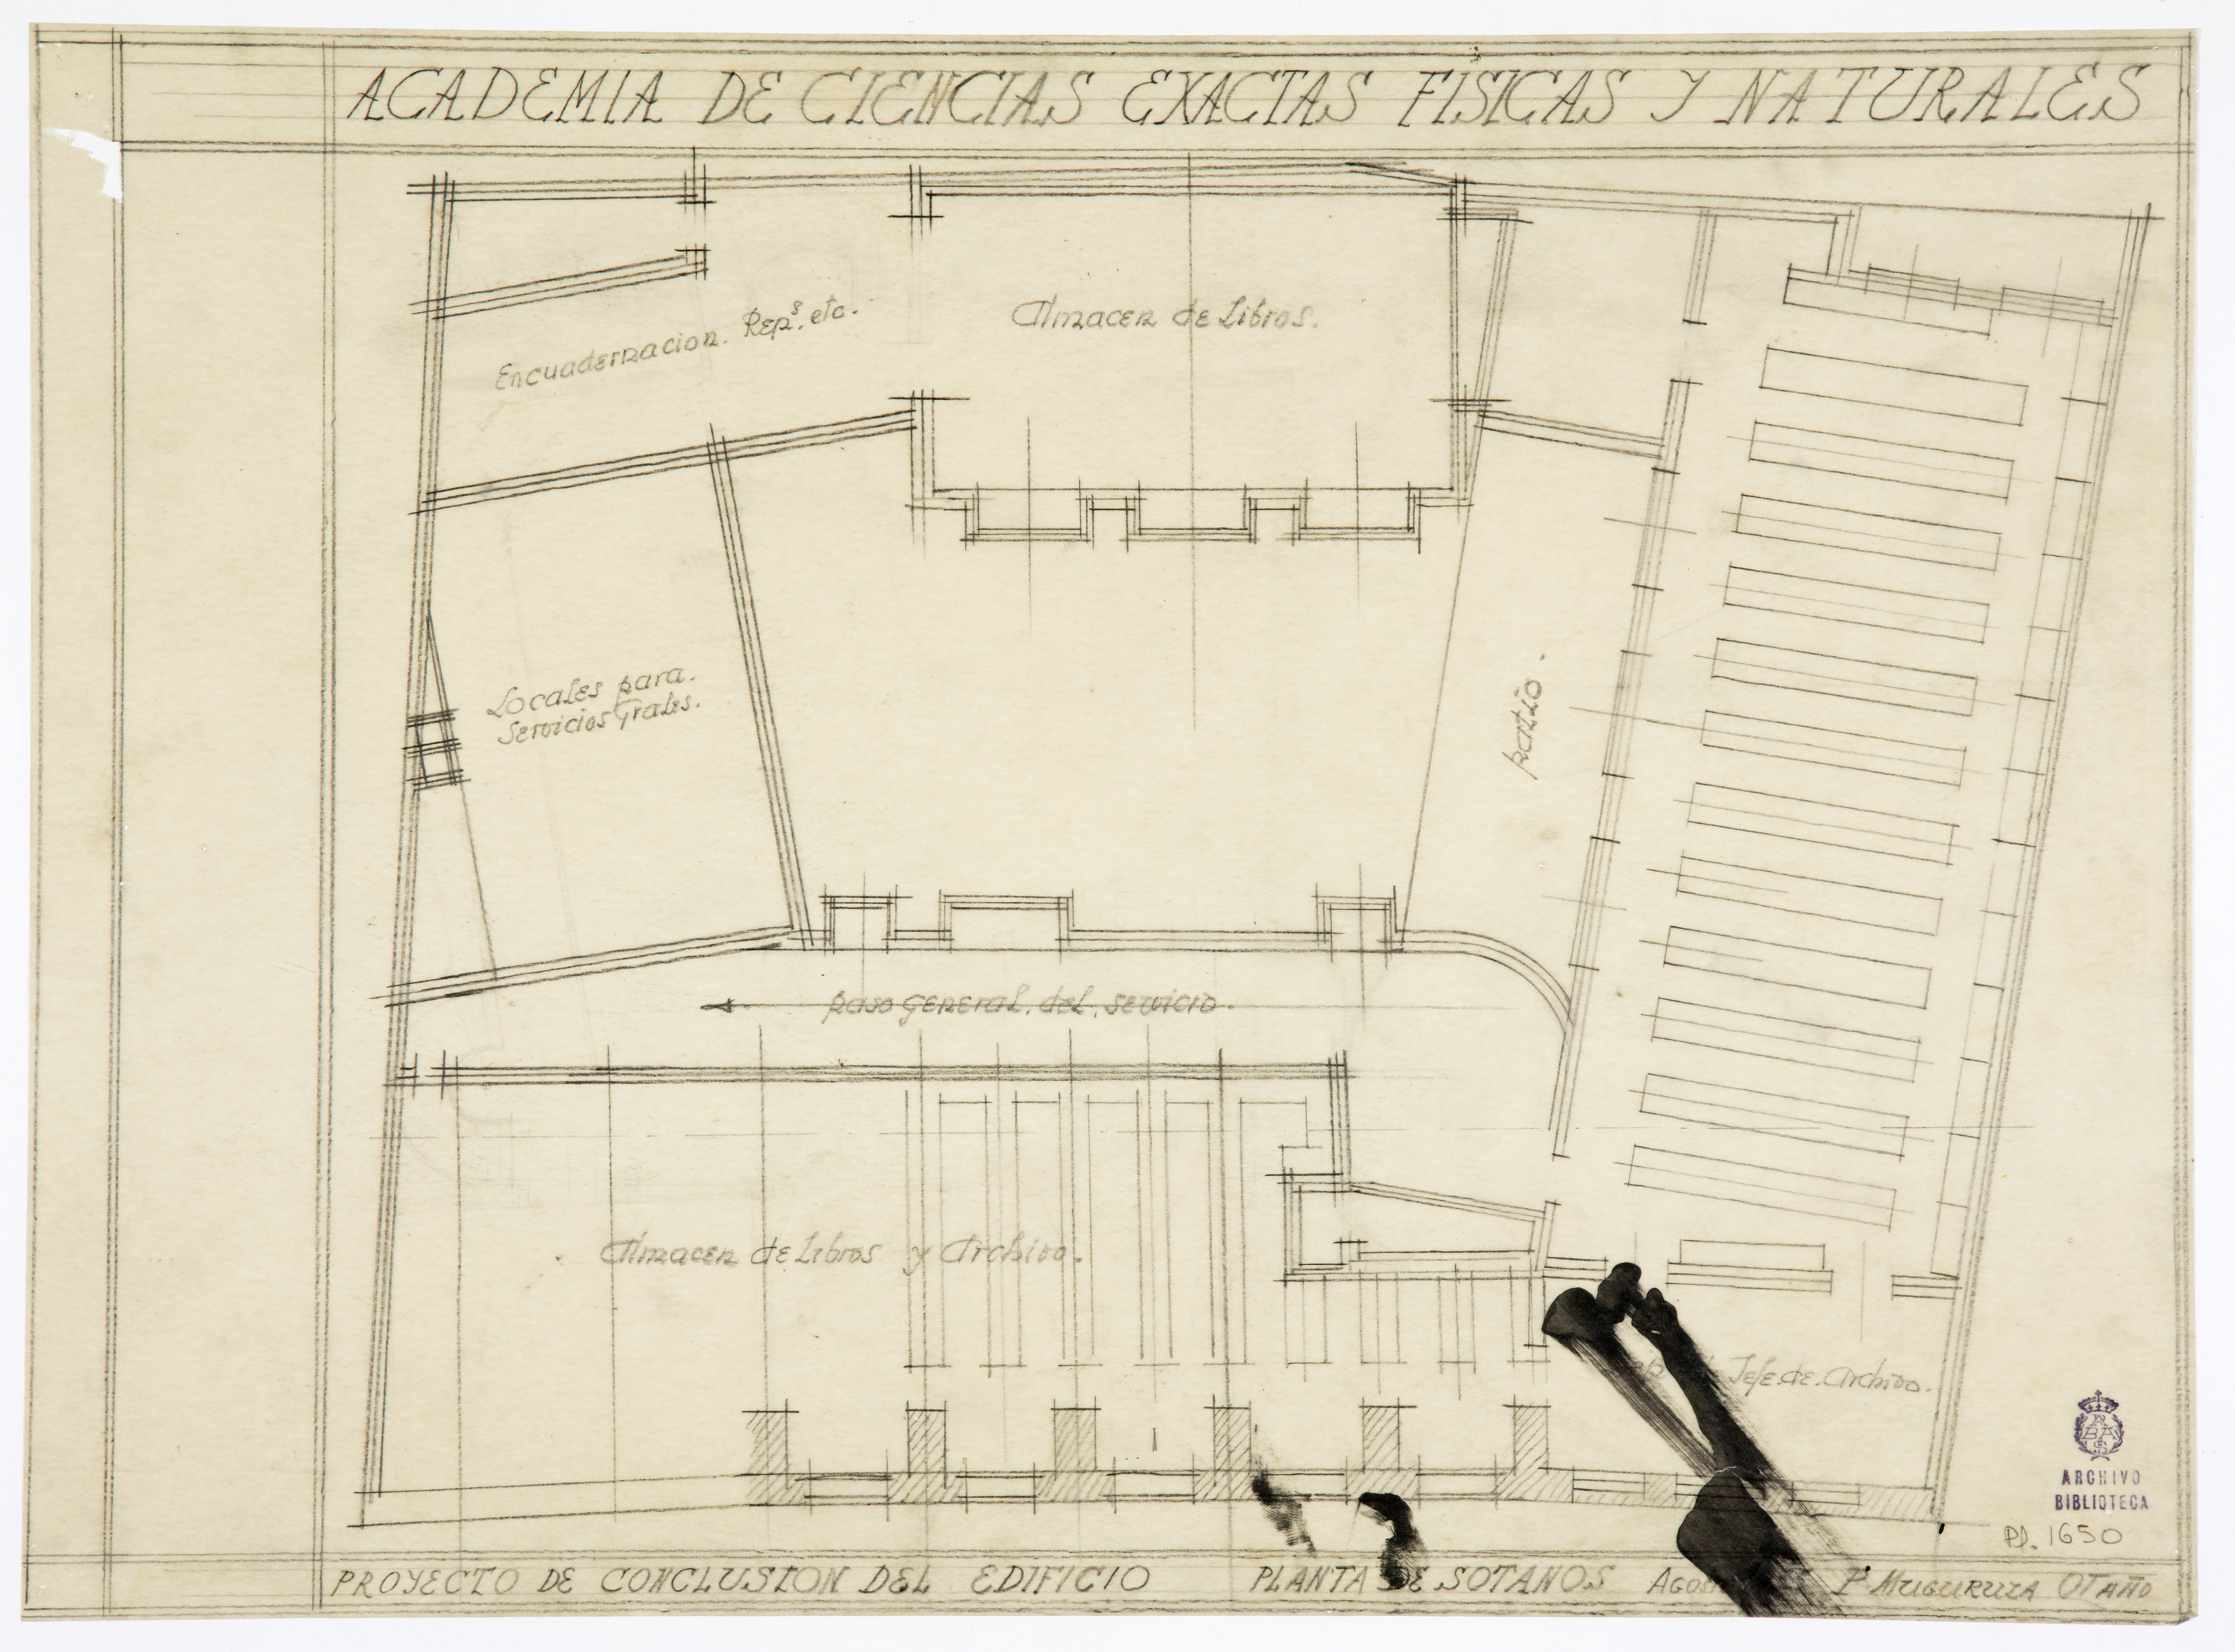 ACADEMIA DE CIENCIAS EXACTAS FISICAS Y NATURALES
Almacen de Libros.
Encuadernacion. Reps. etc.
Locales para.
Servicios Grales.
patio.
paso general. del. servicio.
Almacen de Libros y Archivo.
Jefe. de. Archivo.
ARCHIVO
BIBLIOTECA
PD. 1650
PROYECTO DE CONCLUSION DEL EDIFICIO PLANTA DE SOTANOS P. MUGURUZA OTAÑO